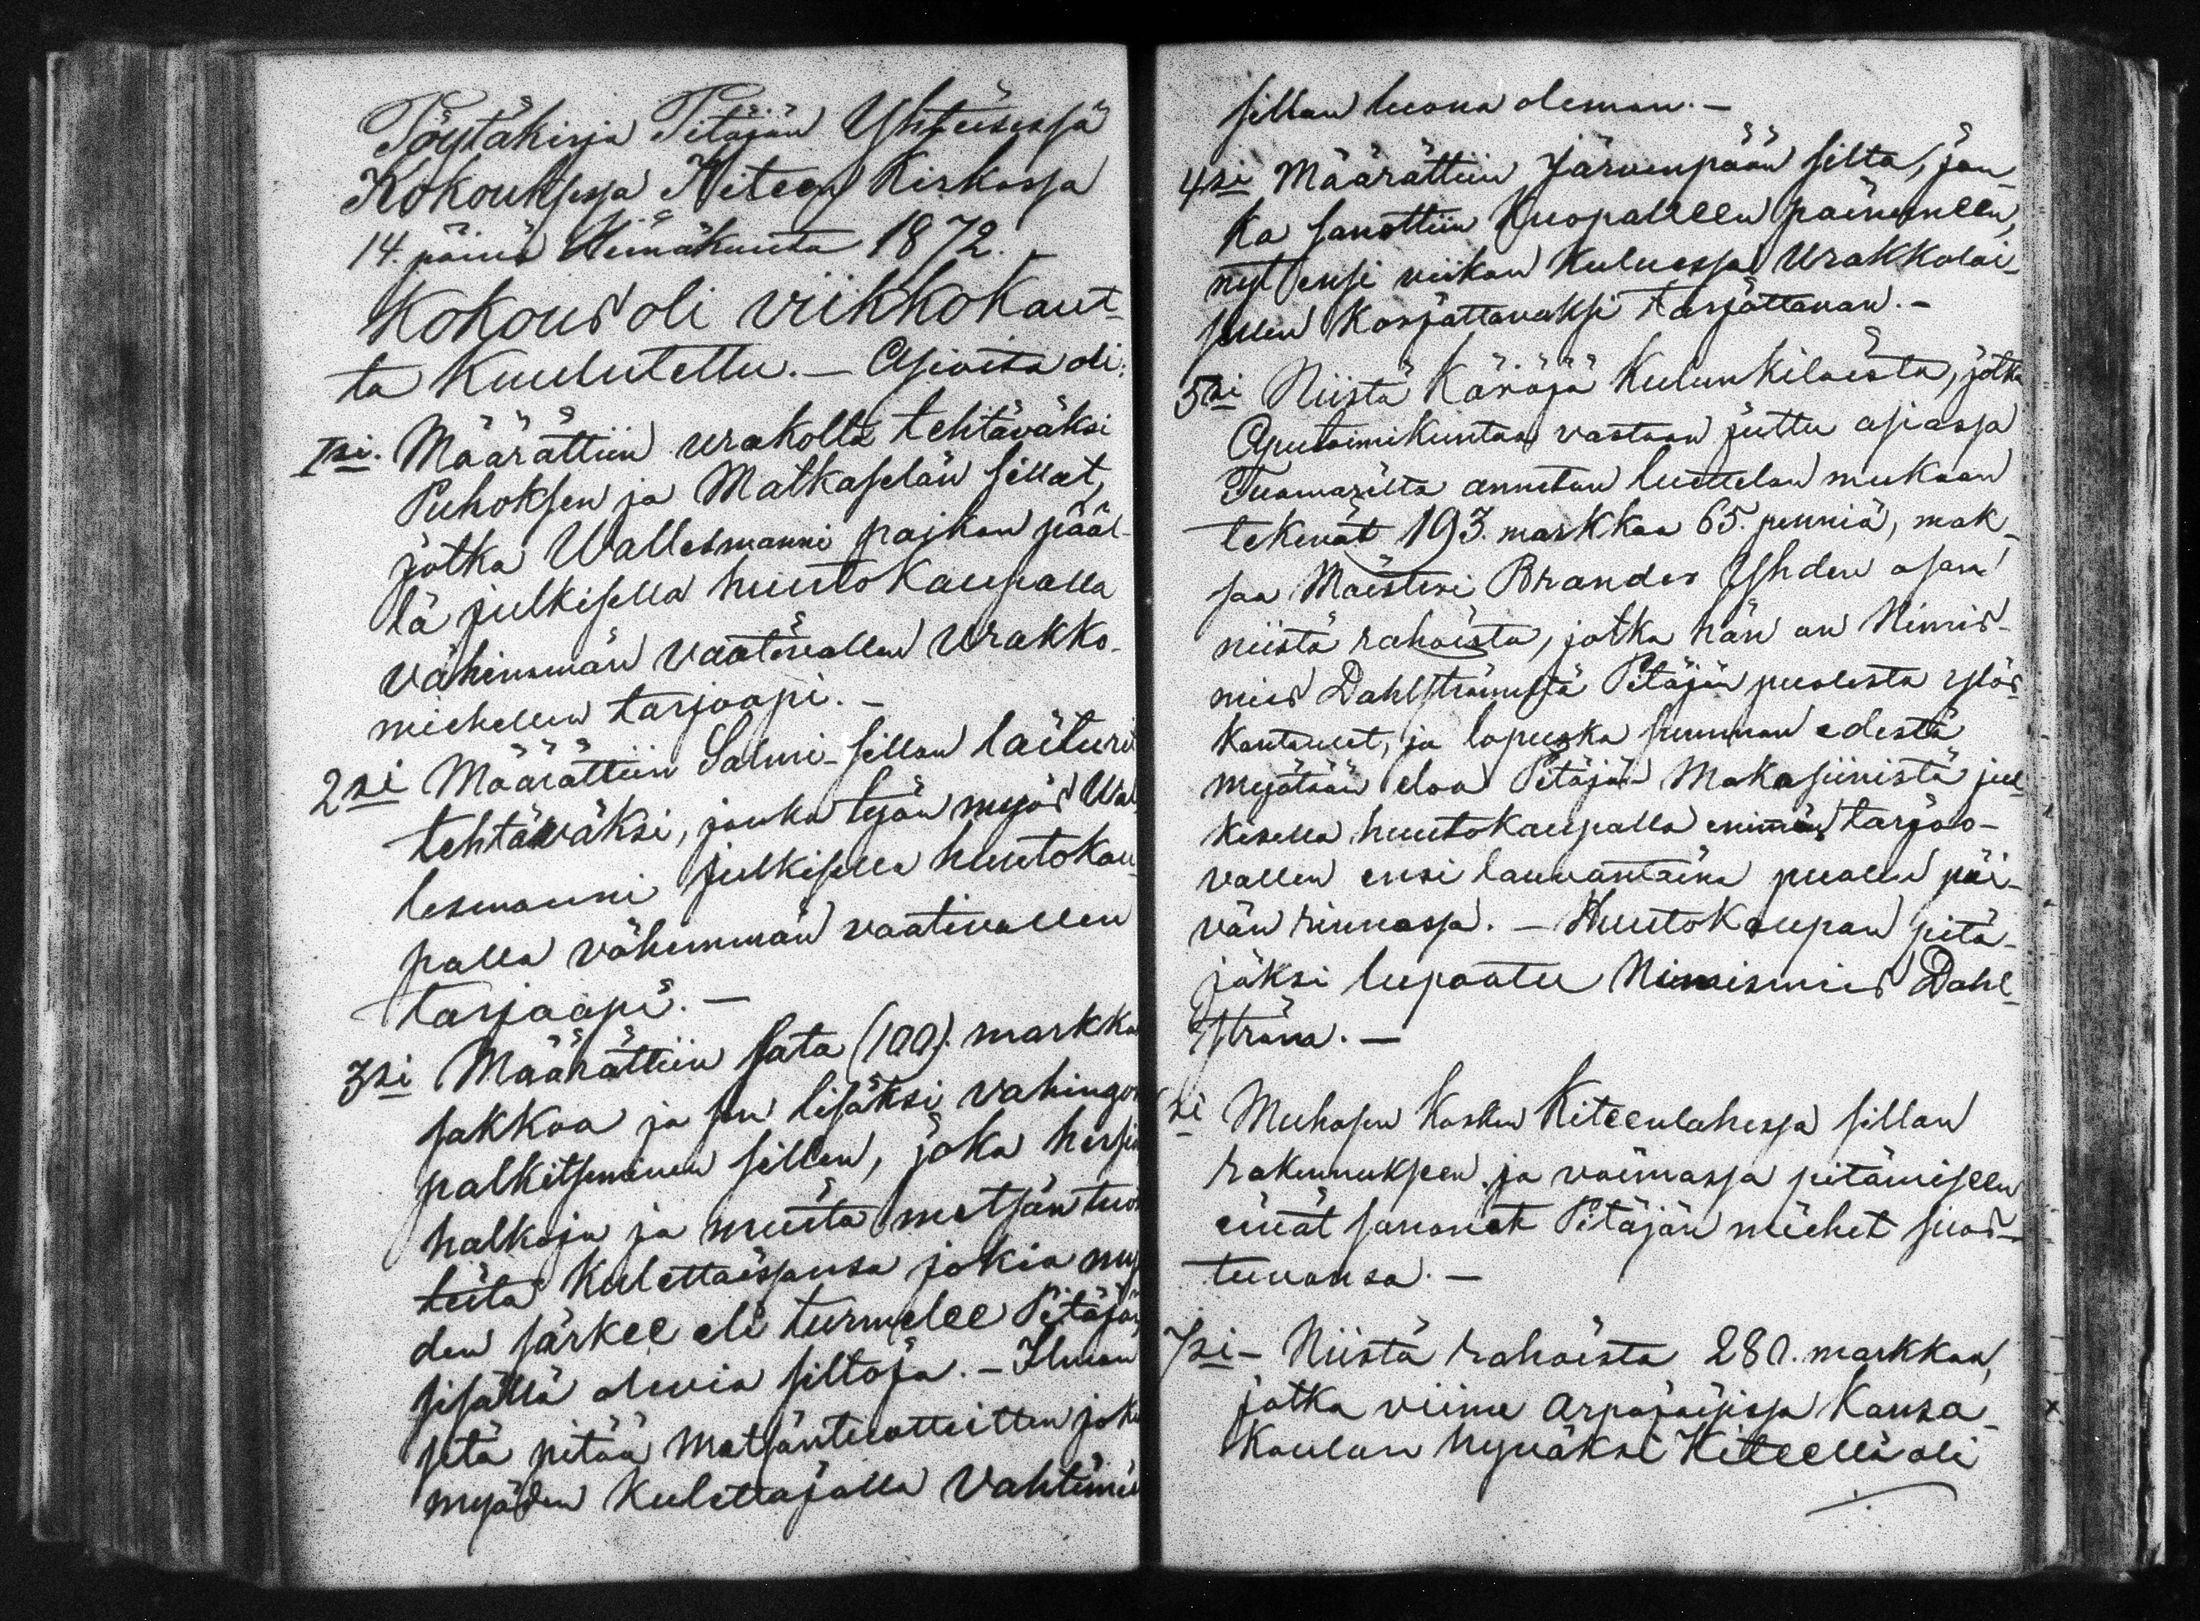 Pöytäkirja Pitäjän Yhteisessä
Kokouksessa Kiteen Kirkossa
14. päivä Heinäkuuta 1872. –
Kokous oli viikkokaut-
ta Kuulutettu. – Asioita oli:
1si. Määrättiin urakolla tehtäväksi
Puhoksen ja Matkaselän sillat,
jotka Wallesmanni paikan pääl-
lä julkisella huutokaupalla
vähimmän vaativallen Urakko-
miehellen tarjoapi. –
2si Määrättiin Salmi-sillan laiturit
tehtäväksi, jonka työn myös Wal
lesmanni julkisella huutokau-
palla vähemmän vaativallen
tarjoapi. –
3si Määrättiin sata (100). markka
sakkoa ja sen lisäksi vahingon
palkitseminen sillen, joka hirsiä
halkoja ja muita metsän tuo
teita kulettaissansa jokia myö
den särkee eli turmelee Pitäjän
sisällä olevia siltoja. – Ilman
sitä pitää metsäntuotteitten jokia
myöden kulettajalla Vahtimies
sillan luona oleman. –
4si Määrättiin Järvenpään silta, jon-
ka sanottiin Kuopallen painuneen,
nyt ensi viikon kuluessa Urakkolai-
sellen Korjattavaksi tarjottavan. –
5si Niistä Käräjä Kulunkiloista, jotka
Aputoimikuntaa vastaan juttu asiassa
Tuomarilta annetun luettelon mukaan
tekevät 193. markkaa 65. penniä, mak-
saa Maisteri Brander Yhden osan
niistä rahoista, jotka hän on Nimis-
mies Dahlströmistä Pitäjän puolesta ylös
kantanut, ja lopuska summan edestä
myötään eloa Pitäjän Makasiinista jul
kisella huutokaupalla enimän tarjoo-
vallen ensi lauvantaina puolen päi-
vän rinnassa. – Huutokaupan pitä-
jäksi lupaatu Nimismies Dahl-
ström. –
si Muhosen Kosken Kiteenlahessa sillan
rakennukseen ja voimassa pitämiseen
eivät sanonet Pitäjän miehet suos-
tuvansa. –
7si – Niistä rahoista 280. markkaa,
jotka viime arpajaisissa Kansa-
Koulun hyväksi Kiteellä oli